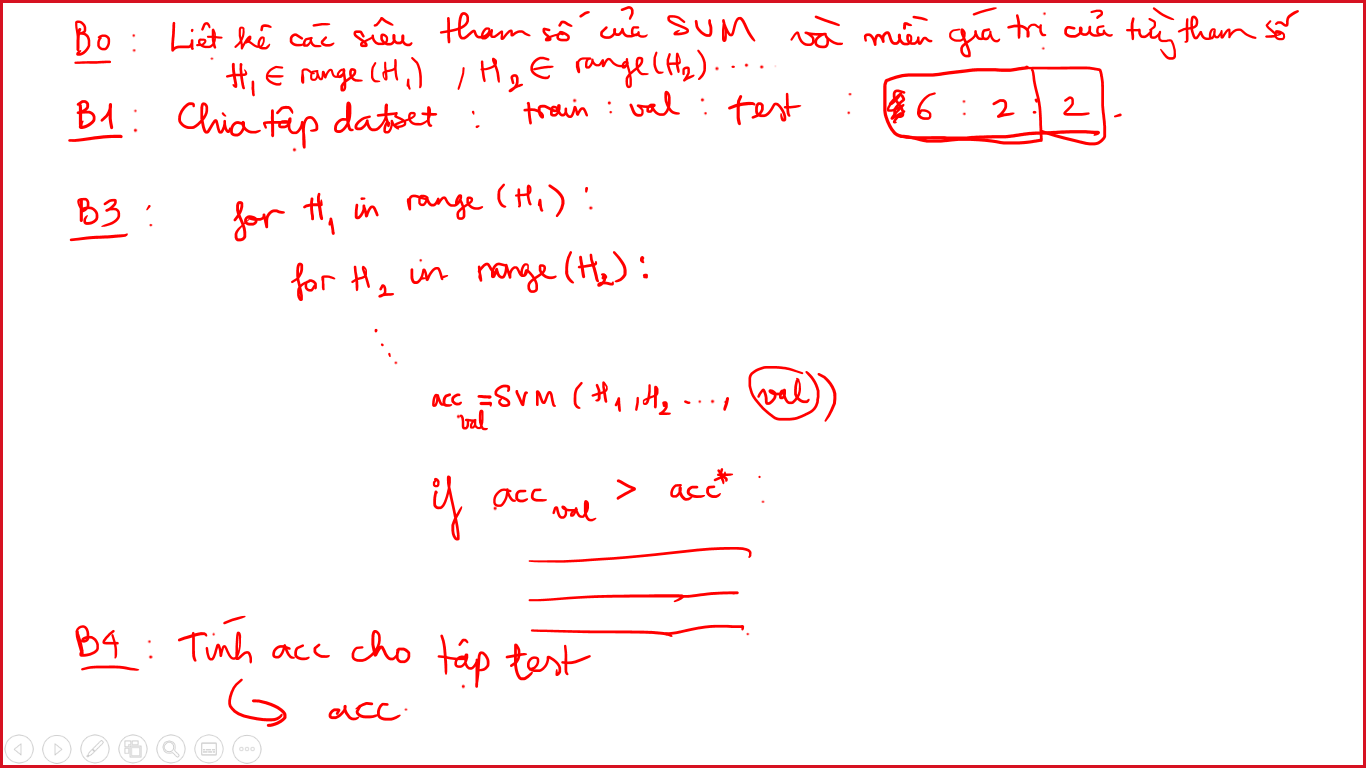 B0 : Liệt kê các siêu tham số của SVM và miền giá trị của từng tham số
H₁ ∈ range(H₁) , H₂ ∈ range(H₂) .....
B1 : Chia tập dataset : train : val : test : 6 : 2 : 2 .
B3 : for H₁ in range (H₁) :
for H₂ in range(H₂) :
⋱
acc_val = SVM (H₁, H₂ ..., val))
if acc_val > acc* :
B4 : Tính acc cho tập test
↳ acc.